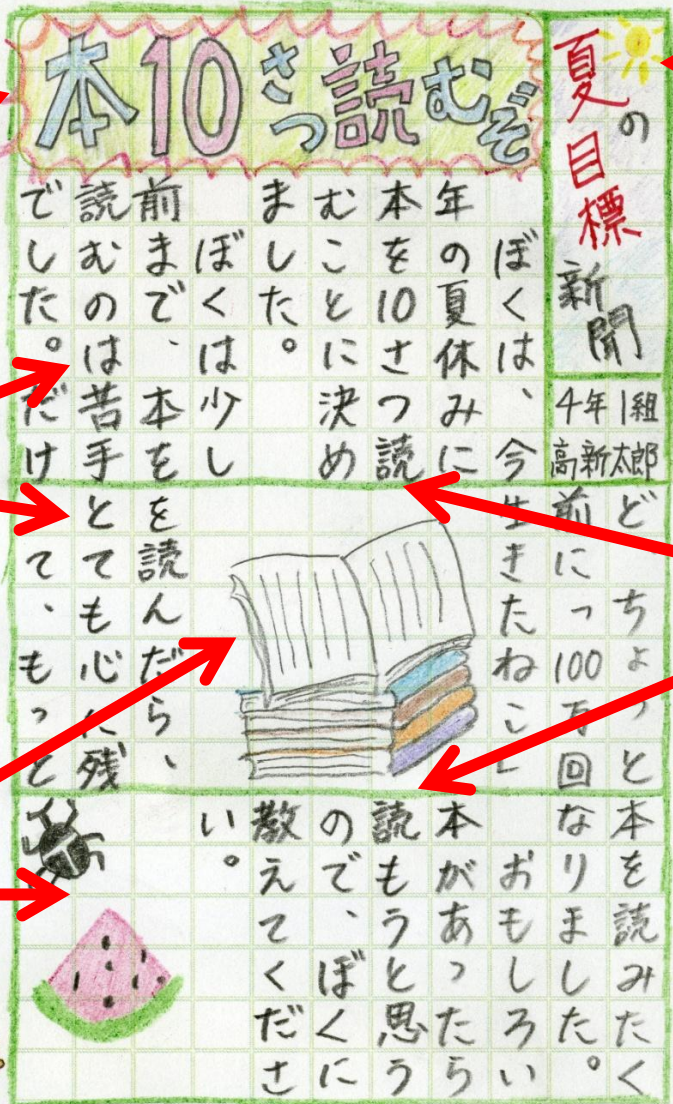 夏の目標新聞
4年1組
高新太郎
本10さつ読むぞ
ぼくは、今
年の夏休みに
本を10さつ読
むことに決め
ました。
ぼくは少し
前まで、本を
読むのは苦手
でした。だけ
どちょっと
前に「100万回
生きたねこ」
を読んだら、
とても心に残
て、もっと
本を読みたく
なりました。
おもしろい
本があったら
読もうと思う
ので、ぼくに
教えてくださ
い。